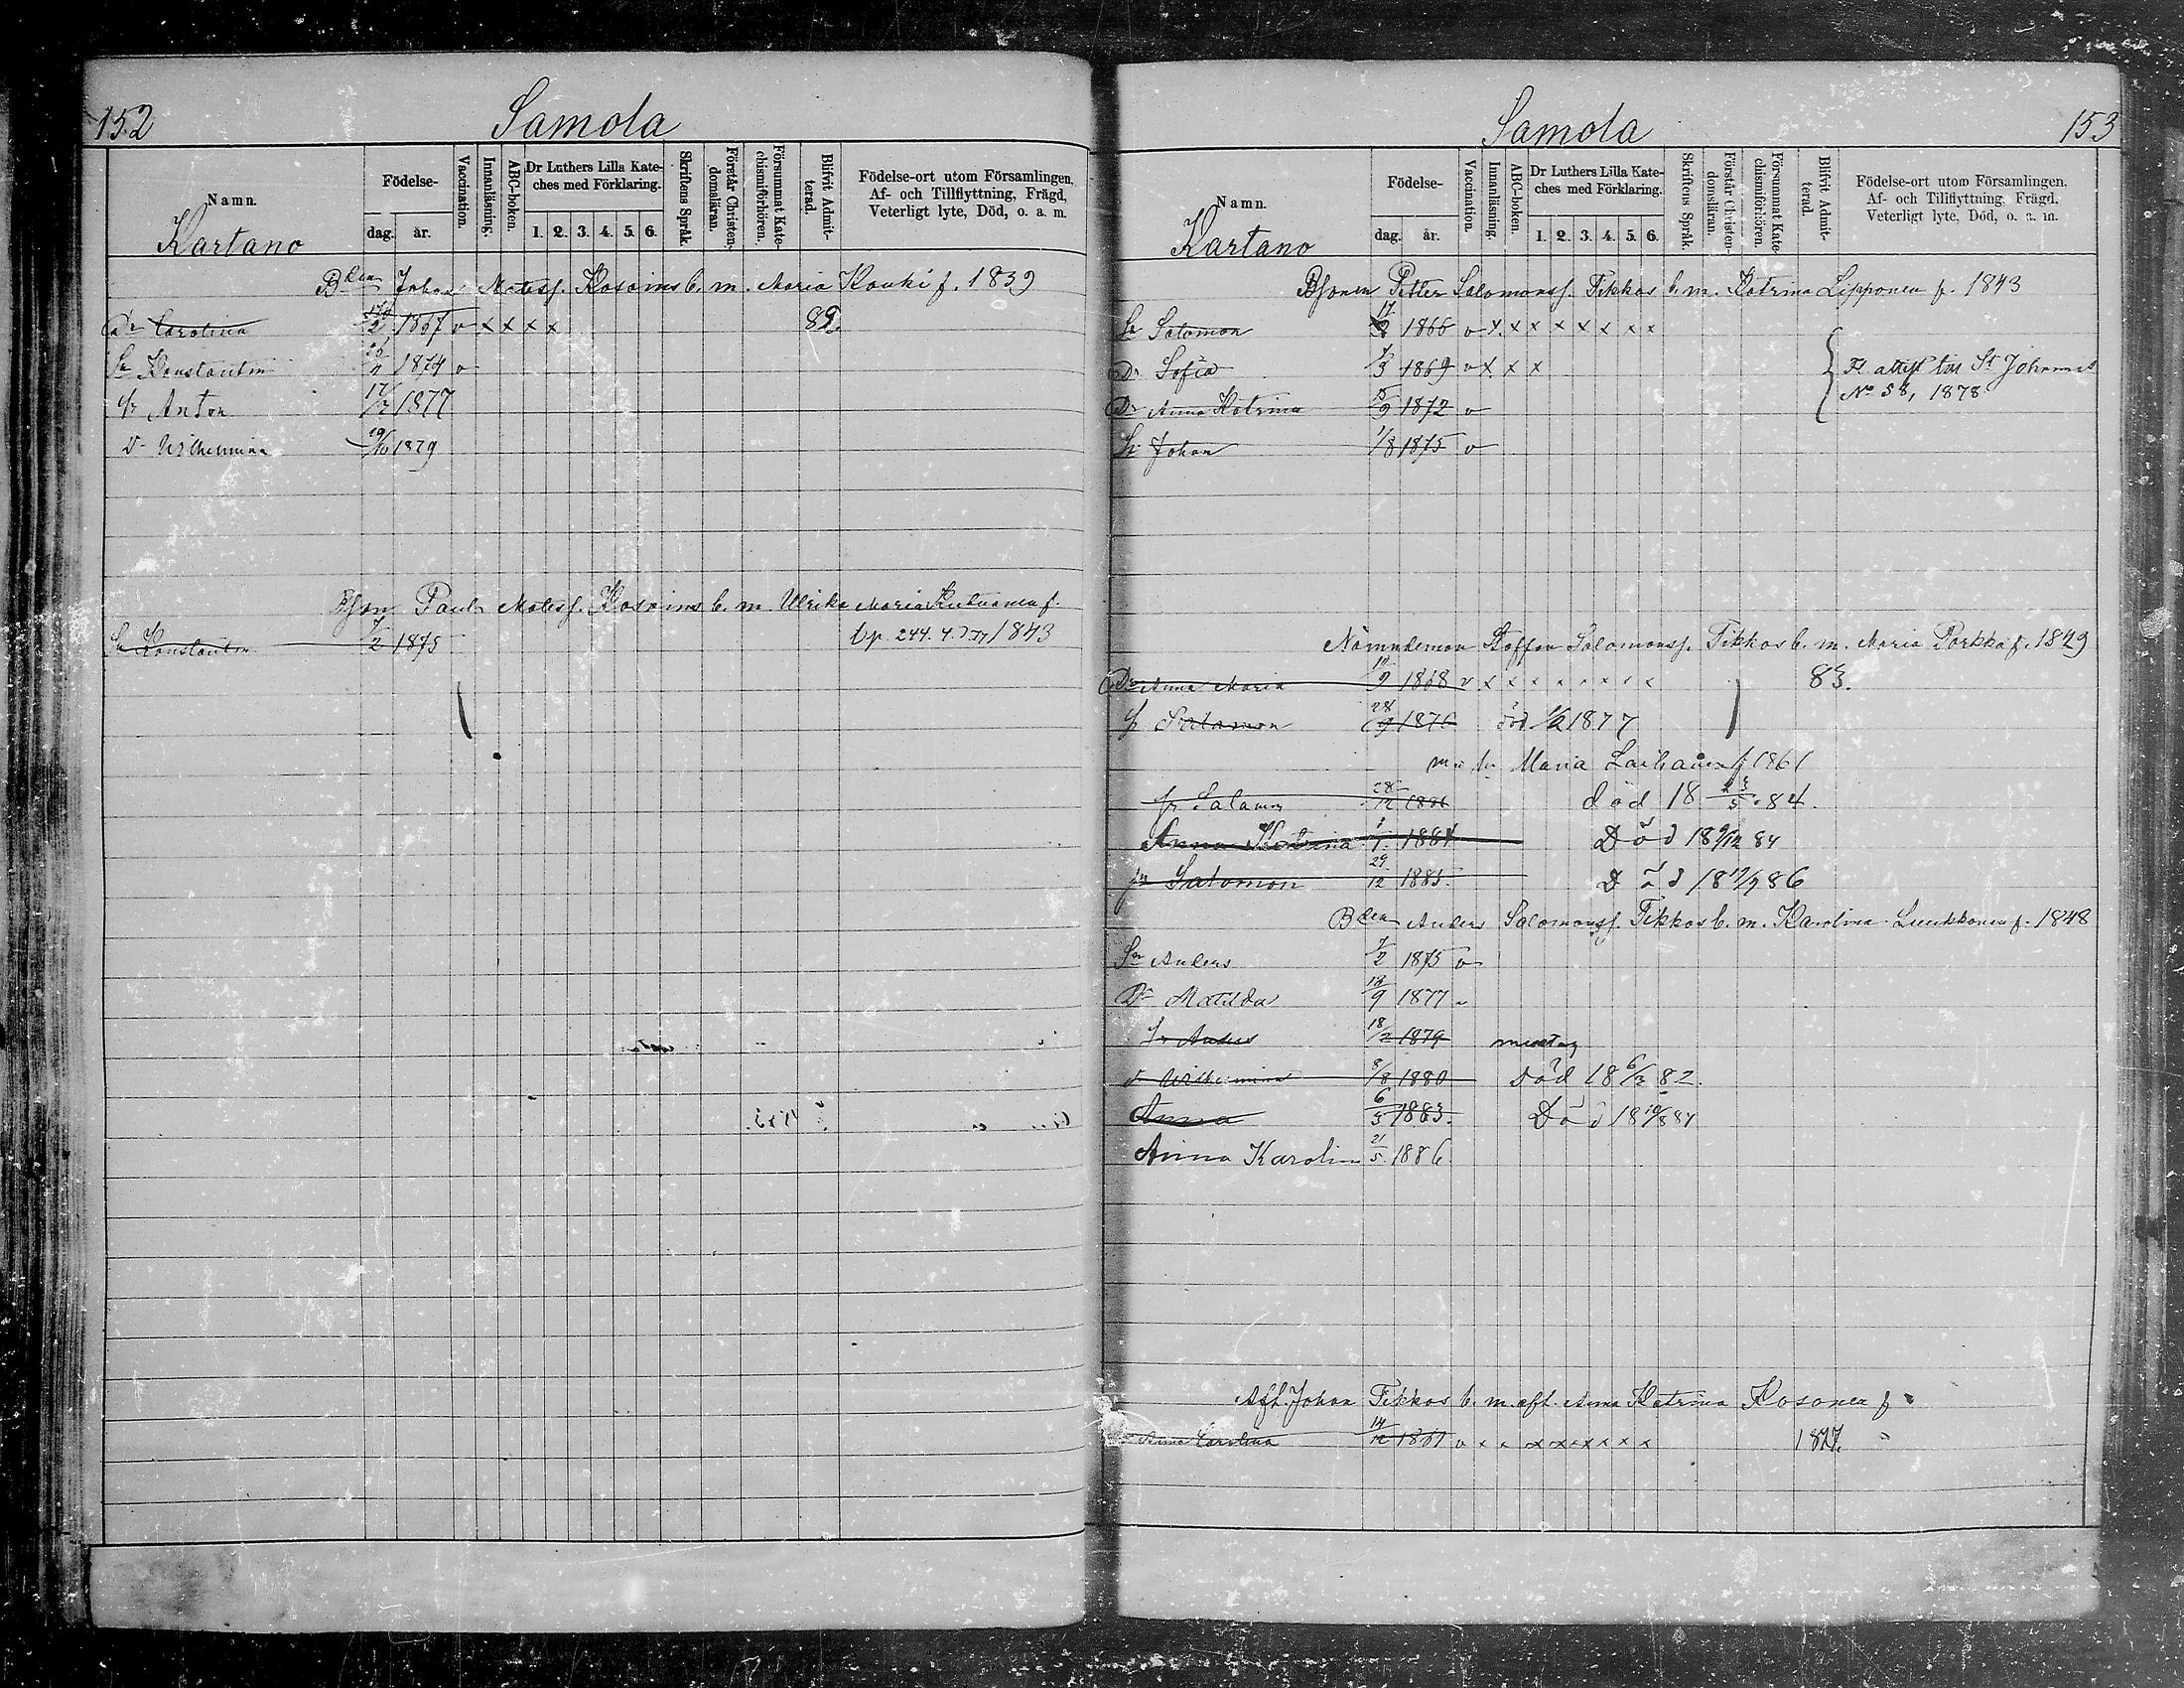 152 Samola
Namn. Födelse- Vaccination. Innanläsning. ABC-boken. Dr Luthers Lilla Kateches med Förklaring. Skriftens Språk. Förstår Christendomsläran. Försummat Katechismiförhören. Blifvit Admitterad. Födelse-ort utom Församlingen, Af- och Tillflyttning, Frägd, Veterligt lyte, Död, o. a. m.
dag. år. 1. 2. 3. 4. 5. 6.
Kartano
Johan Matess. Kosoins b. m. Maria Kouki f. 1839
Dr Carolina 1867 v x x x x 89.
Sr Konstantin 1874 v
Sr Anton 17/7 1877
D Wilhelmina 19/10 1879
Bson Paul Matess. Kosoins b. m. Ulrika Maria f.
Sr Konstantin 7/2 1875 bp. 244. 1843
Samola 153
Namn. Födelse- Vaccination. Innanläsning. ABC-boken. Dr Luthers Lilla Kateches med Förklaring. Skriftens Språk. Förstår Christendomsläran. Försummat Katechismiförhören. Blifvit Admitterad. Födelse-ort utom Församlingen, Af- och Tillflyttning, Frägd, Veterligt lyte, Död, o. a. m.
dag. år. 1. 2. 3. 4. 5. 6.
Kartano
Bsonen Petter Salomonss. Tikkas b. m. Katrina Lipponen f. 1843
Sr Salomon 1866 v x x x x x x x x
Dr Sofia 7/3 1869 v x x x Fl attest till St Johannes
Dr Anna Katrina 5/9 1872 v No 58, 1878
Sr Johan 1/8 1875 v
Nämndeman Staffan Salomonss. Tikkas b. m. Maria Porkka f. 1849
Dr Anna Maria 1868 v x x x x x x x x 83.
Sr Salamon 28/9 1876 död 1/2 1877
Maria Laihanen f 1861
Sr Salamon 28/12 död 18 23/5 84.
Anna Katrina 1/1 1884 Död 18 9/12 84
Sr Salomon 29/12 1885. Död 18 17/7 86
Bden Anders Salomonss. Tikkas b. m. Karolina Luukkonen f. 1848
Sr Anders 7/2 1875 v
Dr Matilda 13/9 1877
Sr Anders 18/2 1879
D Wilhelmina 8/8 1880 Död 18 6/3 82.
Anna 6/5 1883. Död 18 10/8 84
Anna Karolin 21/5 1886
Aft. Johan Tikkas b. m. aft. Anna Katrina Kosonen f
Anna Carolina 14/12 1861 v x x x x x x x x 1877.